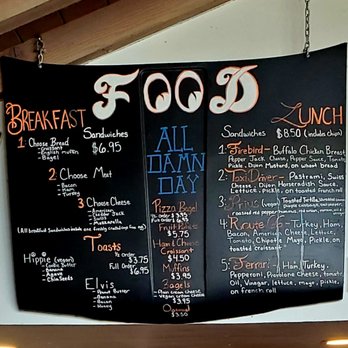 FOOD
BREAKFAST
Sandwiches
$6.95
1 Choose Bread
- Croissant
- English muffin
- Bagel
2 Choose Meat
- Bacon
- Ham
- Turkey
3 Choose Cheese
- American
- Cheddar
- Pepper Jack
- Swiss
(All breakfast Sandwiches include one freshly cracked egg)
Toasts
Hippie (vegan)
- Banana
- Agave
- Chia Seeds
1/2 Order $3.75
Full Order $6.95
Elvis
- Peanut Butter
- Banana
- Bacon
- Honey
ALL
DAMN
DAY
Pizza Bagel
1/2 Order $3.95
Fruit Bowl
$5.75
Ham & Cheese
Croissant
$4.50
Muffins
$3.95
Bagels
- Plain cream cheese
- Vegan cream cheese
$3.95
Oatmeal
$3.50
LUNCH
Sandwiches $8.50 (includes chips)
1. Firebird - Buffalo Chicken Breast,
Pepper Jack Cheese, Pepper Sauce, Tomato,
Pickle, Dijon Mustard, on wheat bread
2. Taxi Driver - Pastrami, Swiss
Cheese, Dijon Horseradish Sauce,
Lettuce, Pickle, on toasted
3. Prius (vegan) Toasted Tortilla,
roasted red pepper hummus,
4. Route 66 - Turkey, Ham,
Bacon, American Cheese, Lettuce,
Tomato, Chipotle Mayo, Pickle, on
toasted croissant
5. Ferrari - Ham, Turkey,
Pepperoni, Provolone Cheese, tomato,
Oil, Vinegar, lettuce, mayo, pickle,
on french roll